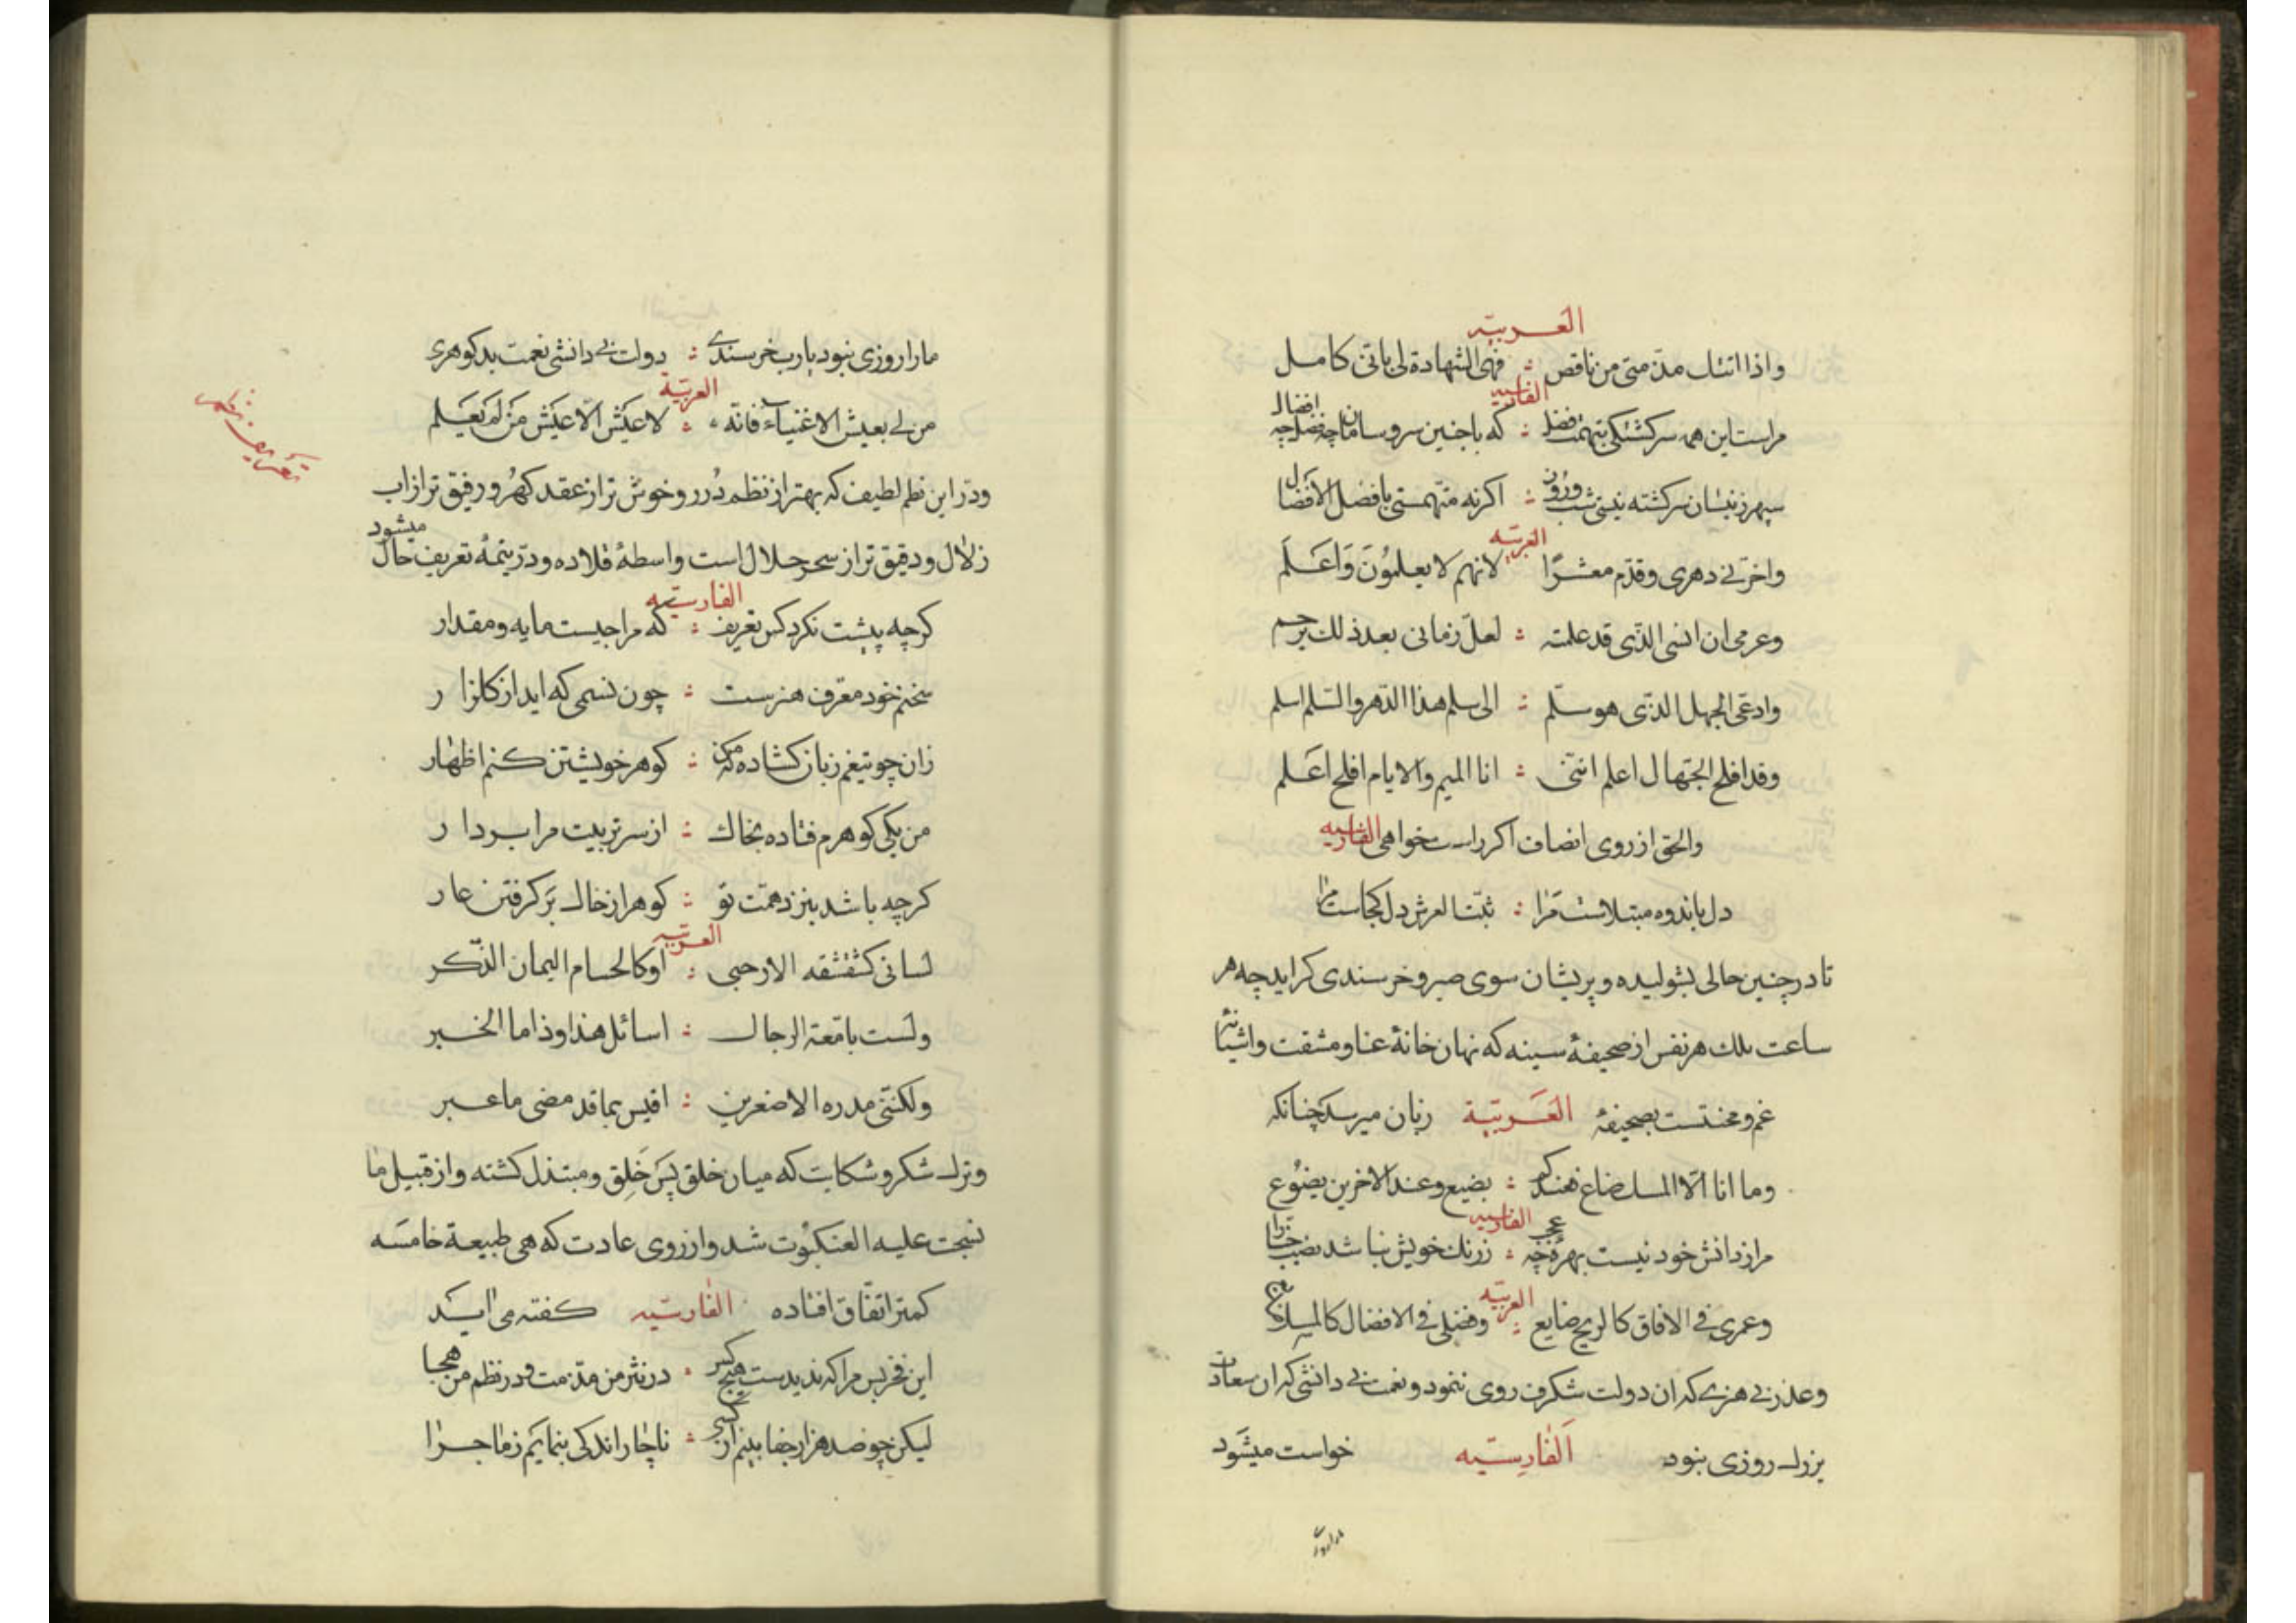 العربیّه
واذا اتتك مذمتی من ناقص : فهی الشهادة لی بانی کامل
الفارسیه
مراست این همه سرکشتکی بتهمت فضل : که باجنین سروسامان چه فضل چه افضال
سپهر زنیسان سرکشته نیستی شب وروز : اکرنه متهمستی بافضل الافضال
العربیّه
واخرنی دهری وقدم معشرًا : لانهم لا یعلمُونَ وَاَعَلَم
وعرمی ان انسی الذی قد علمته : لعلّ زمانی بعد ذلك یرحم
وادعی الجهل الذی هو سلّم : الی سلم هذا الدّهر والسّلم اسلم
وقد افلح الجّهال اعلم اننی : انا المیم والایام افلح اعَلم
والحق از روی انصاف اکر راست خواهی الفارسیه
دل باندوه مبتلاست مَرا : ثبّت العرش دل کجاست مرا
تا در چنین حالی بشولیده و پریشان سوی صبر و خرسندی کراید چه هر
ساعت بلك هر نفس از صحیفهٔ سینه که نهان خانهٔ عنا و مشقت و اشیانهٔ
غم و محنتست بصحیفهٔ العَربیّة زبان میرسد چنانکه
وما انا الّا المسك ضاع فعندکم : یضیع وعند الاخرین یضُوع
الفارسیه
مرا ز دانش خود نیست بهرهٔ چه عجب : ز رنك خویش نباشد نصیب حنا را
العربیّه
وعمری فی الافاق کالریح ضایع : وفضلی فی الافضال کالمسك
وعذر بی هنری که ان دولت شکرف روی ننمود و نعمت بی دانشی که ان سعادت
بزرك روزی نبود الفَارسِیّه خواست میشَود
مارا روزی
مارا روزی نبود یارب خرسندی : دولت بی دانشی نعمت بد کوهری
العربیّة
من لی بعیش الاغنیآء فانّه : لا عَیش الّا عَیش مَن لَم یَعلم
ودر این نظم لطیف که بهتر از نظم دُرر و خوش تر از عقد کهُر و رفیق تر از اب
زلال و دقیق تر از سحر حلال است واسطهٔ قلاده و درّ یتیمهٔ تعریف حال میشود
تعریف
الفارسیّه
کرچه پیشت نکرد کس تعریف : که مرا جیست مایه و مقدار
سخنم خود معرف هنرست : چون نسیمی که اید از کلزار
زان چو تیغم زبان کشاده که من : کوهر خویشتن کنم اظهار
من یکی کوهرم فتاده بخاك : از سر تربیت مرا بردار
کرچه باشد بنزد همّت تو : کوهر از خاك بَر کرفتن عار
العربیّه
لسانی کشقشقه الارحبی : اوکالحسام الیمان الذّکر
ولست بامّعة الرجال : اسائل هذا وذا ما الخبر
ولکننی مدره الاصغرین : اقیس بما قد مضی ما عبر
وترك شکر و شکایت که میان خلق بسَ خَلِق و مبتذل کشته و از قبیل ما
نسجت علیه العنکبُوت شد و از روی عادت که هی طبیعة خامسَه
کمتر اتفّاق افتاده الفارسیّه کفته می اید
این فخر بس مرا که ندیدست هیج کس : در نثر من مذمت و در نظم من هجا
لیکن چو صد هزار جفا بینم از کسی : ناچار اندکی بنمایم ز ماجرا